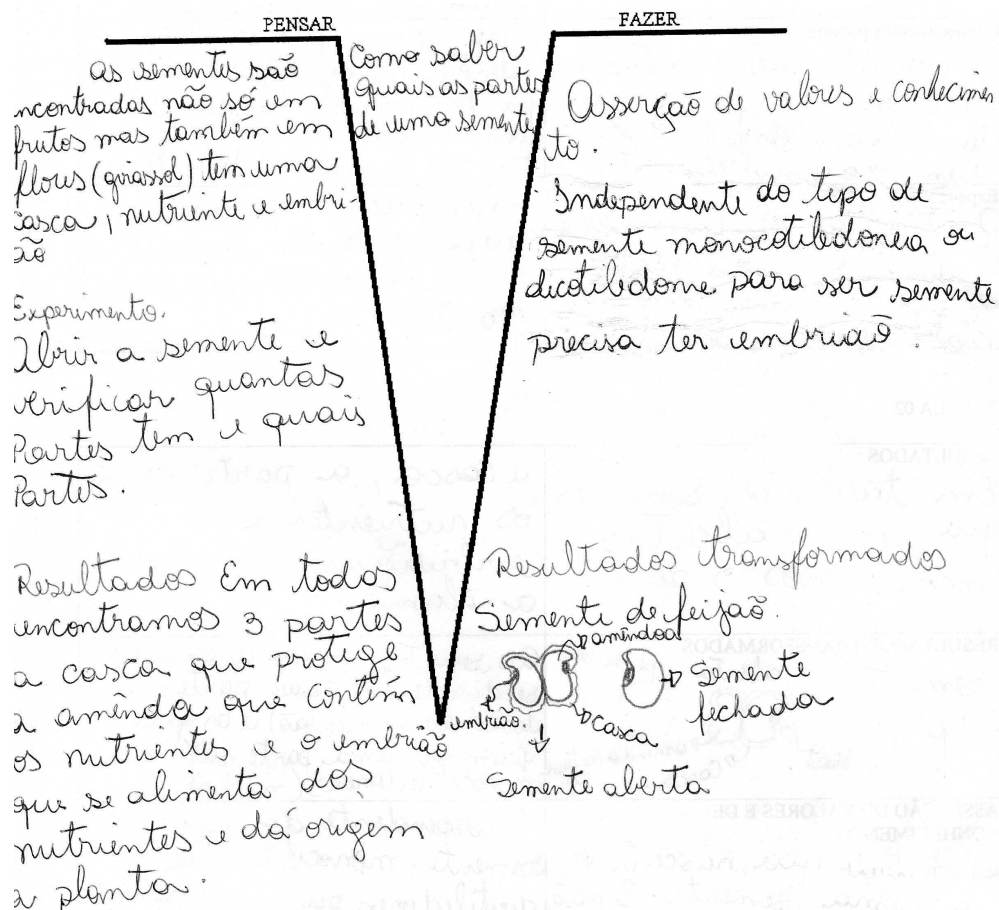 PENSAR
as sementes são
ncontradas não só em
frutos mas também em
flores (girassol) tem uma
casca, nutriente e embri-
ão
Experimento.
Abrir a semente e
verificar quantas
Partes tem e quais
Partes.
Resultados Em todas
encontramos 3 partes
a casca que protege
a amênda que contém
os nutrientes e o embrião
que se alimenta dos
nutrientes e da origem
a planta.
Como saber
quais as partes
de uma semente
FAZER
Asserção de valores e conhecimen
to.
Independente do tipo de
semente monocotiledonea ou
dicotiledone para ser semente
precisa ter embrião.
Resultados transformados
Semente de feijão.
amêndoa
embrião
casca
Semente
fechada
Semente aberta